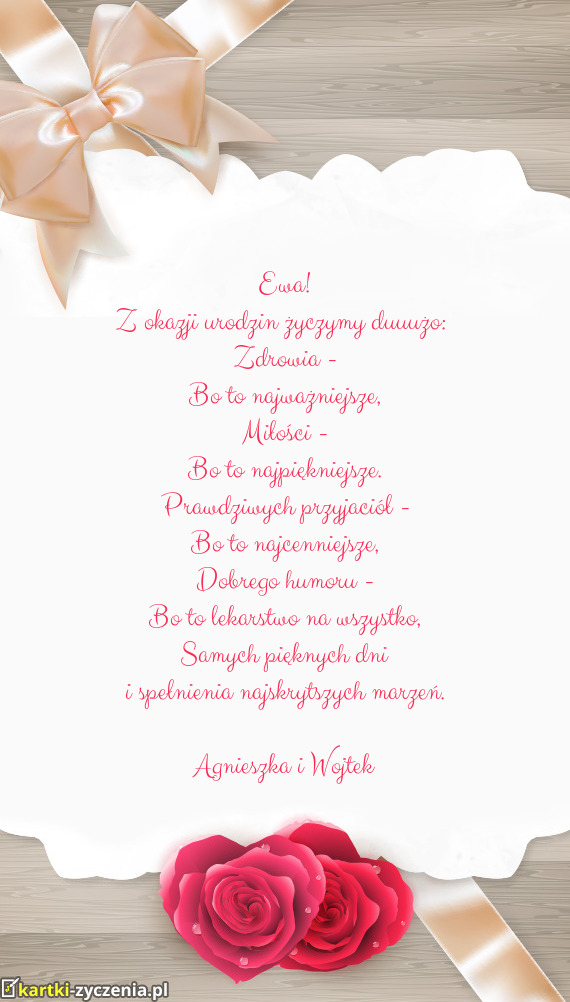 Ewa!
Z okazji urodzin życzymy duuużo:
Zdrowia -
Bo to najważniejsze,
Miłości -
Bo to najpiękniejsze.
Prawdziwych przyjaciół -
Bo to najcenniejsze,
Dobrego humoru -
Bo to lekarstwo na wszystko,
Samych pięknych dni
i spełnienia najskrytszych marzeń.
Agnieszka i Wojtek
kartki-zyczenia.pl